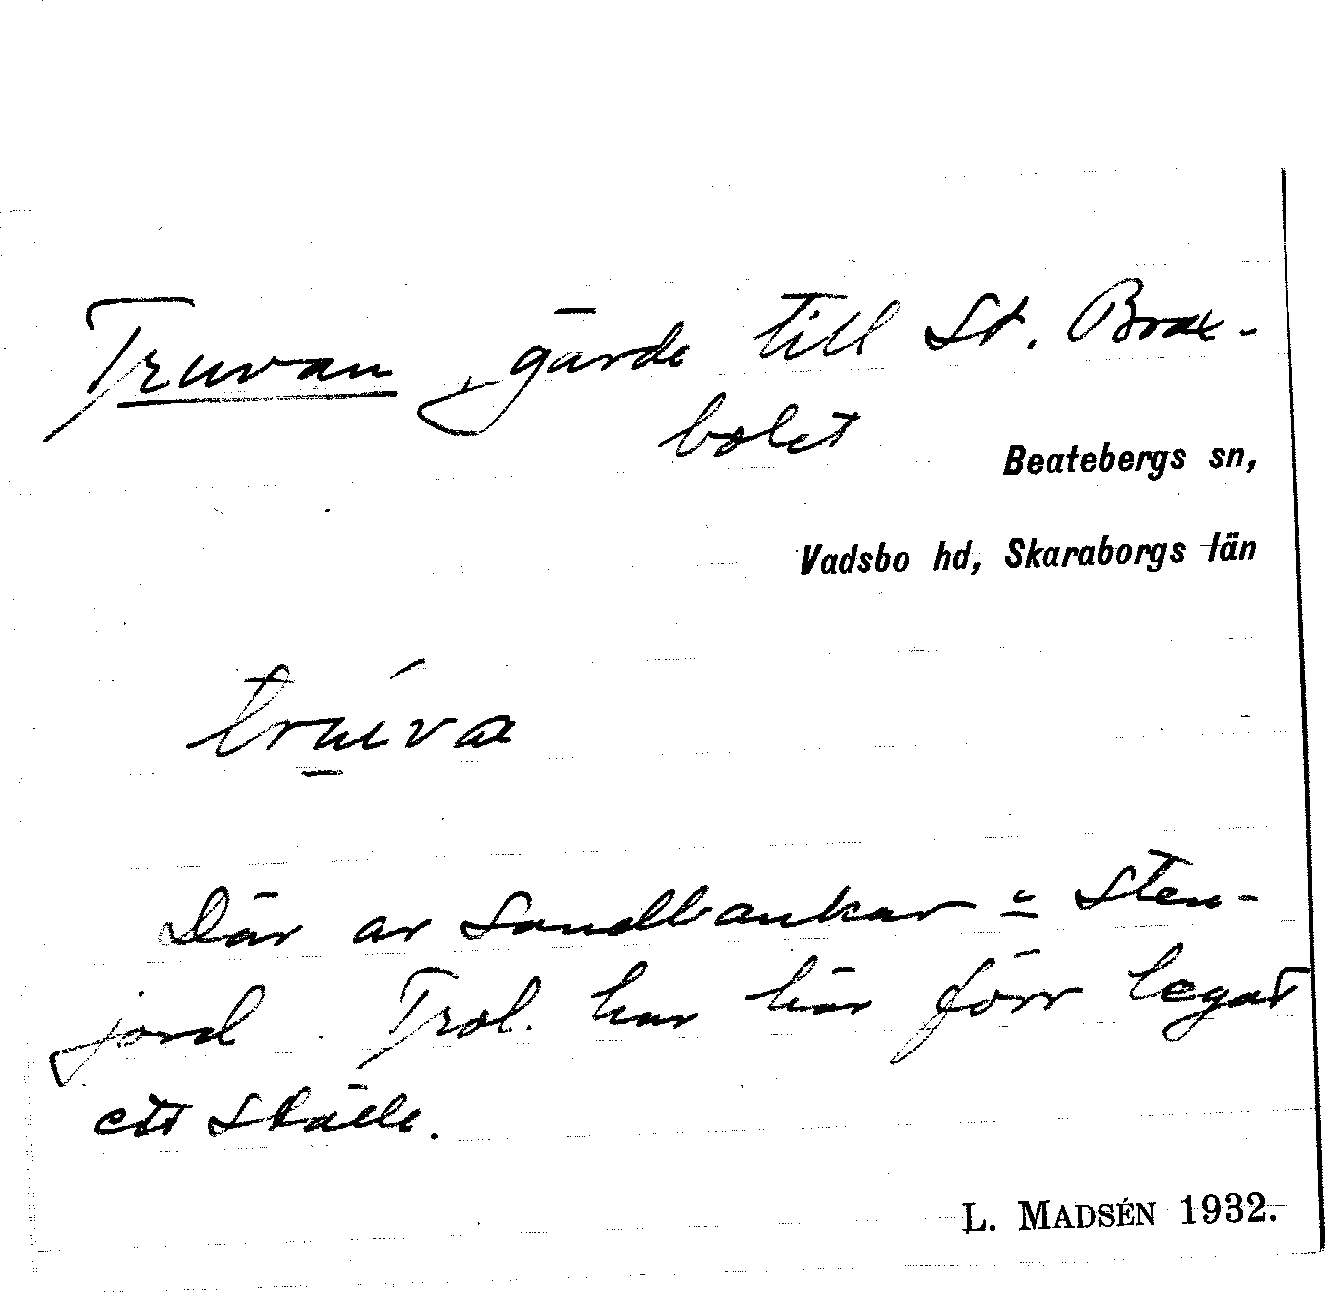 Truvan, gärde till St. Brax-
bolet
Beatebergs sn,
Vadsbo hd, Skaraborgs län
truv́a
Där är sandbankar o sten-
jord. Trol. har här förr legat
ett ställe.
L. MADSÉN 1932.